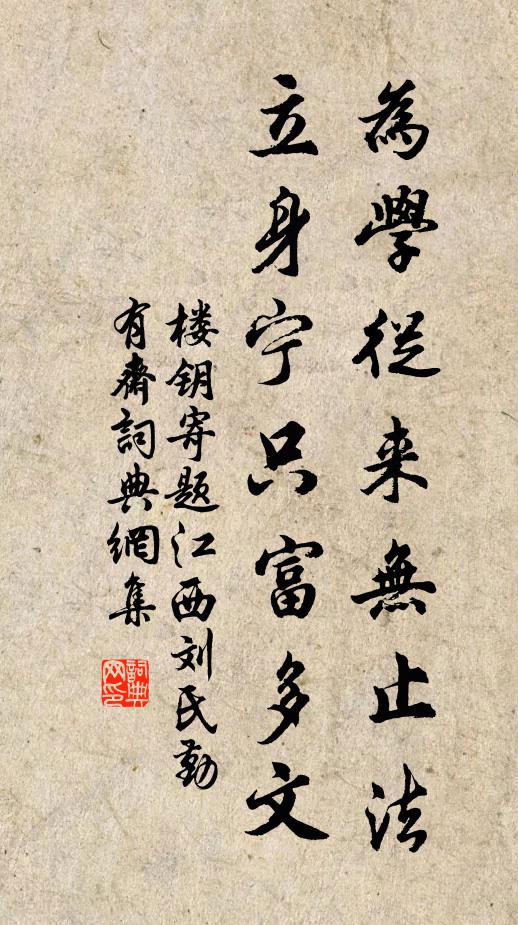 為學從来無止法
立身宁只富多文
楼钥寄题江西刘氏勤
有齋詞典網集
詞典
网印